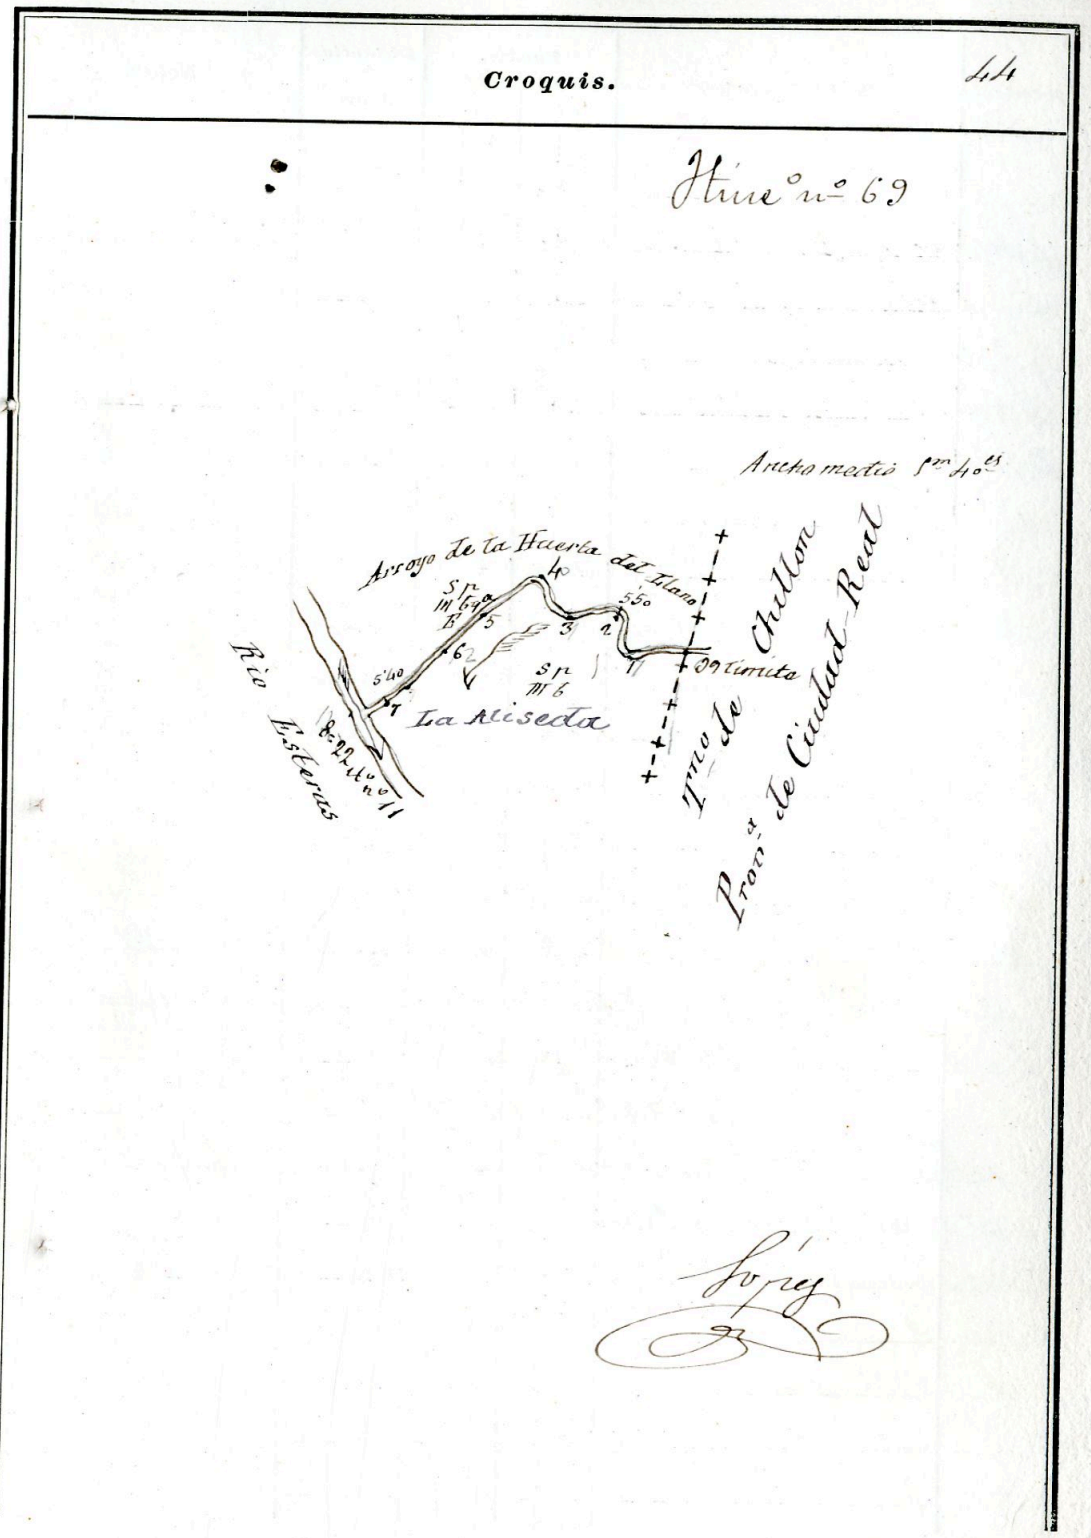 Croquis.
44
Itine° nº 69
Ancho medio 5m 40es
Arroyo de la Huerta del Llano
Sn
III 69a
E
4
5
3
550
2
1
6
2
540
7
Sn
III 6
09 limite
La Aliseda
Rio Esteras
8=22 Itº nº 11
Tmo de Chillon
Provª de Ciudad-Real
Lopez